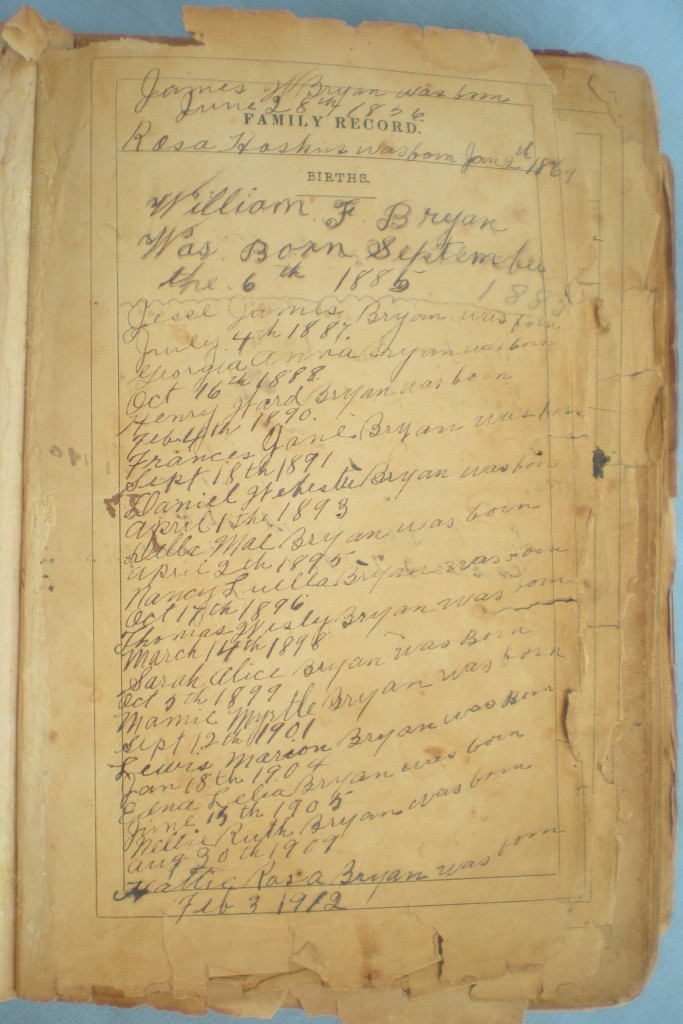 James W Bryan was born
June 28th 1856
FAMILY RECORD.
Rosa Hoskins was born Jan 9th 1869
BIRTHS.
William F Bryan
Was Born September
the 6th 1885 1885
Jesse James Bryan was born
July 4th 1887.
Georgia Anna Bryan was born
Oct 16th 1888
Henry Ward Bryan was born
Feb 4th 1890.
Frances Jane Bryan was born
Sept 18th 1891
Daniel Webester Bryan was born
April 1the 1893
Mae Bryan was born
April 2th 1895
Nancy Luella Bryan was born
Oct 17th 1896
Thomas Wesly Bryan was born
March 14th 1898
Sarah Alice Bryan was Born
Oct 5th 1899
Mamie Myrtle Bryan was born
Sept 12th 1901
Lewis Marion Bryan was Born
Jan 18th 1904
Lelia Bryan was born
June 15th 1905
Nellie Ruth Bryan was born
Aug 30th 1909
Hattie Rosa Bryan was born
Feb 3 1912